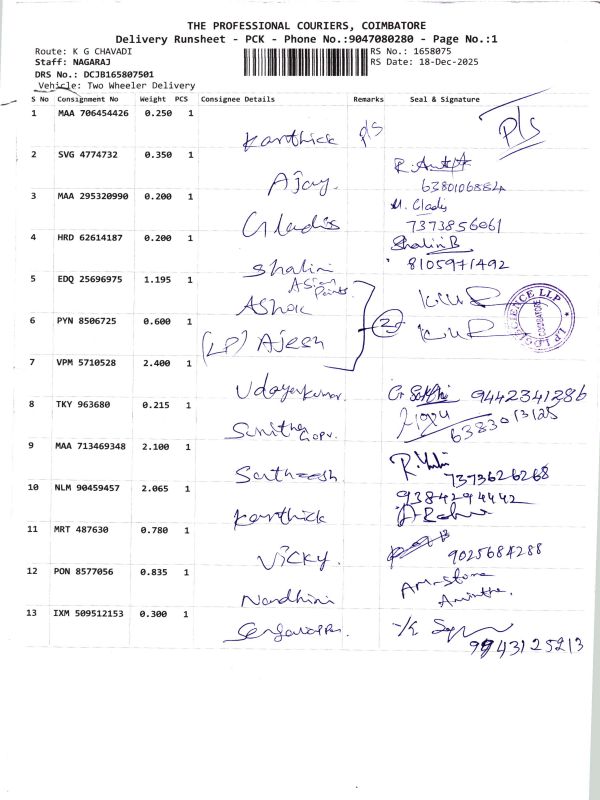 THE PROFESSIONAL COURIERS, COIMBATORE
Delivery Runsheet - PCK - Phone No.:9047080280 - Page No.:1
Route: K G CHAVADI RS No.: 1658075
Staff: NAGARAJ RS Date: 18-Dec-2025
DRS No.: DCJB165807501
Vehicle: Two Wheeler Delivery
S No Consignment No Weight PCS Consignee Details Remarks Seal & Signature
1 MAA 706454426 0.250 1 Karthick P/s P/s
2 SVG 4774732 0.350 1 Ajay. 6380106884
3 MAA 295320990 0.200 1 Gladis M. Cladis 7373856061
4 HRD 62614187 0.200 1 Shalini Shalini B 8105971492
5 EDQ 25696975 1.195 1 Asian Paints. Ashok
6 PYN 8506725 0.600 1 (LP) Ajesh 2
7 VPM 5710528 2.400 1 Udayakumar. 9442341286
8 TKY 963680 0.215 1 Sunitha 6383013125
9 MAA 713469348 2.100 1 Satheesh 7373626268
10 NLM 90459457 2.065 1 Karthick 9384294442
11 MRT 487630 0.780 1 Vicky. 9025684288
12 PON 8577056 0.835 1 Nandhini
13 IXM 509512153 0.300 1 9943125213